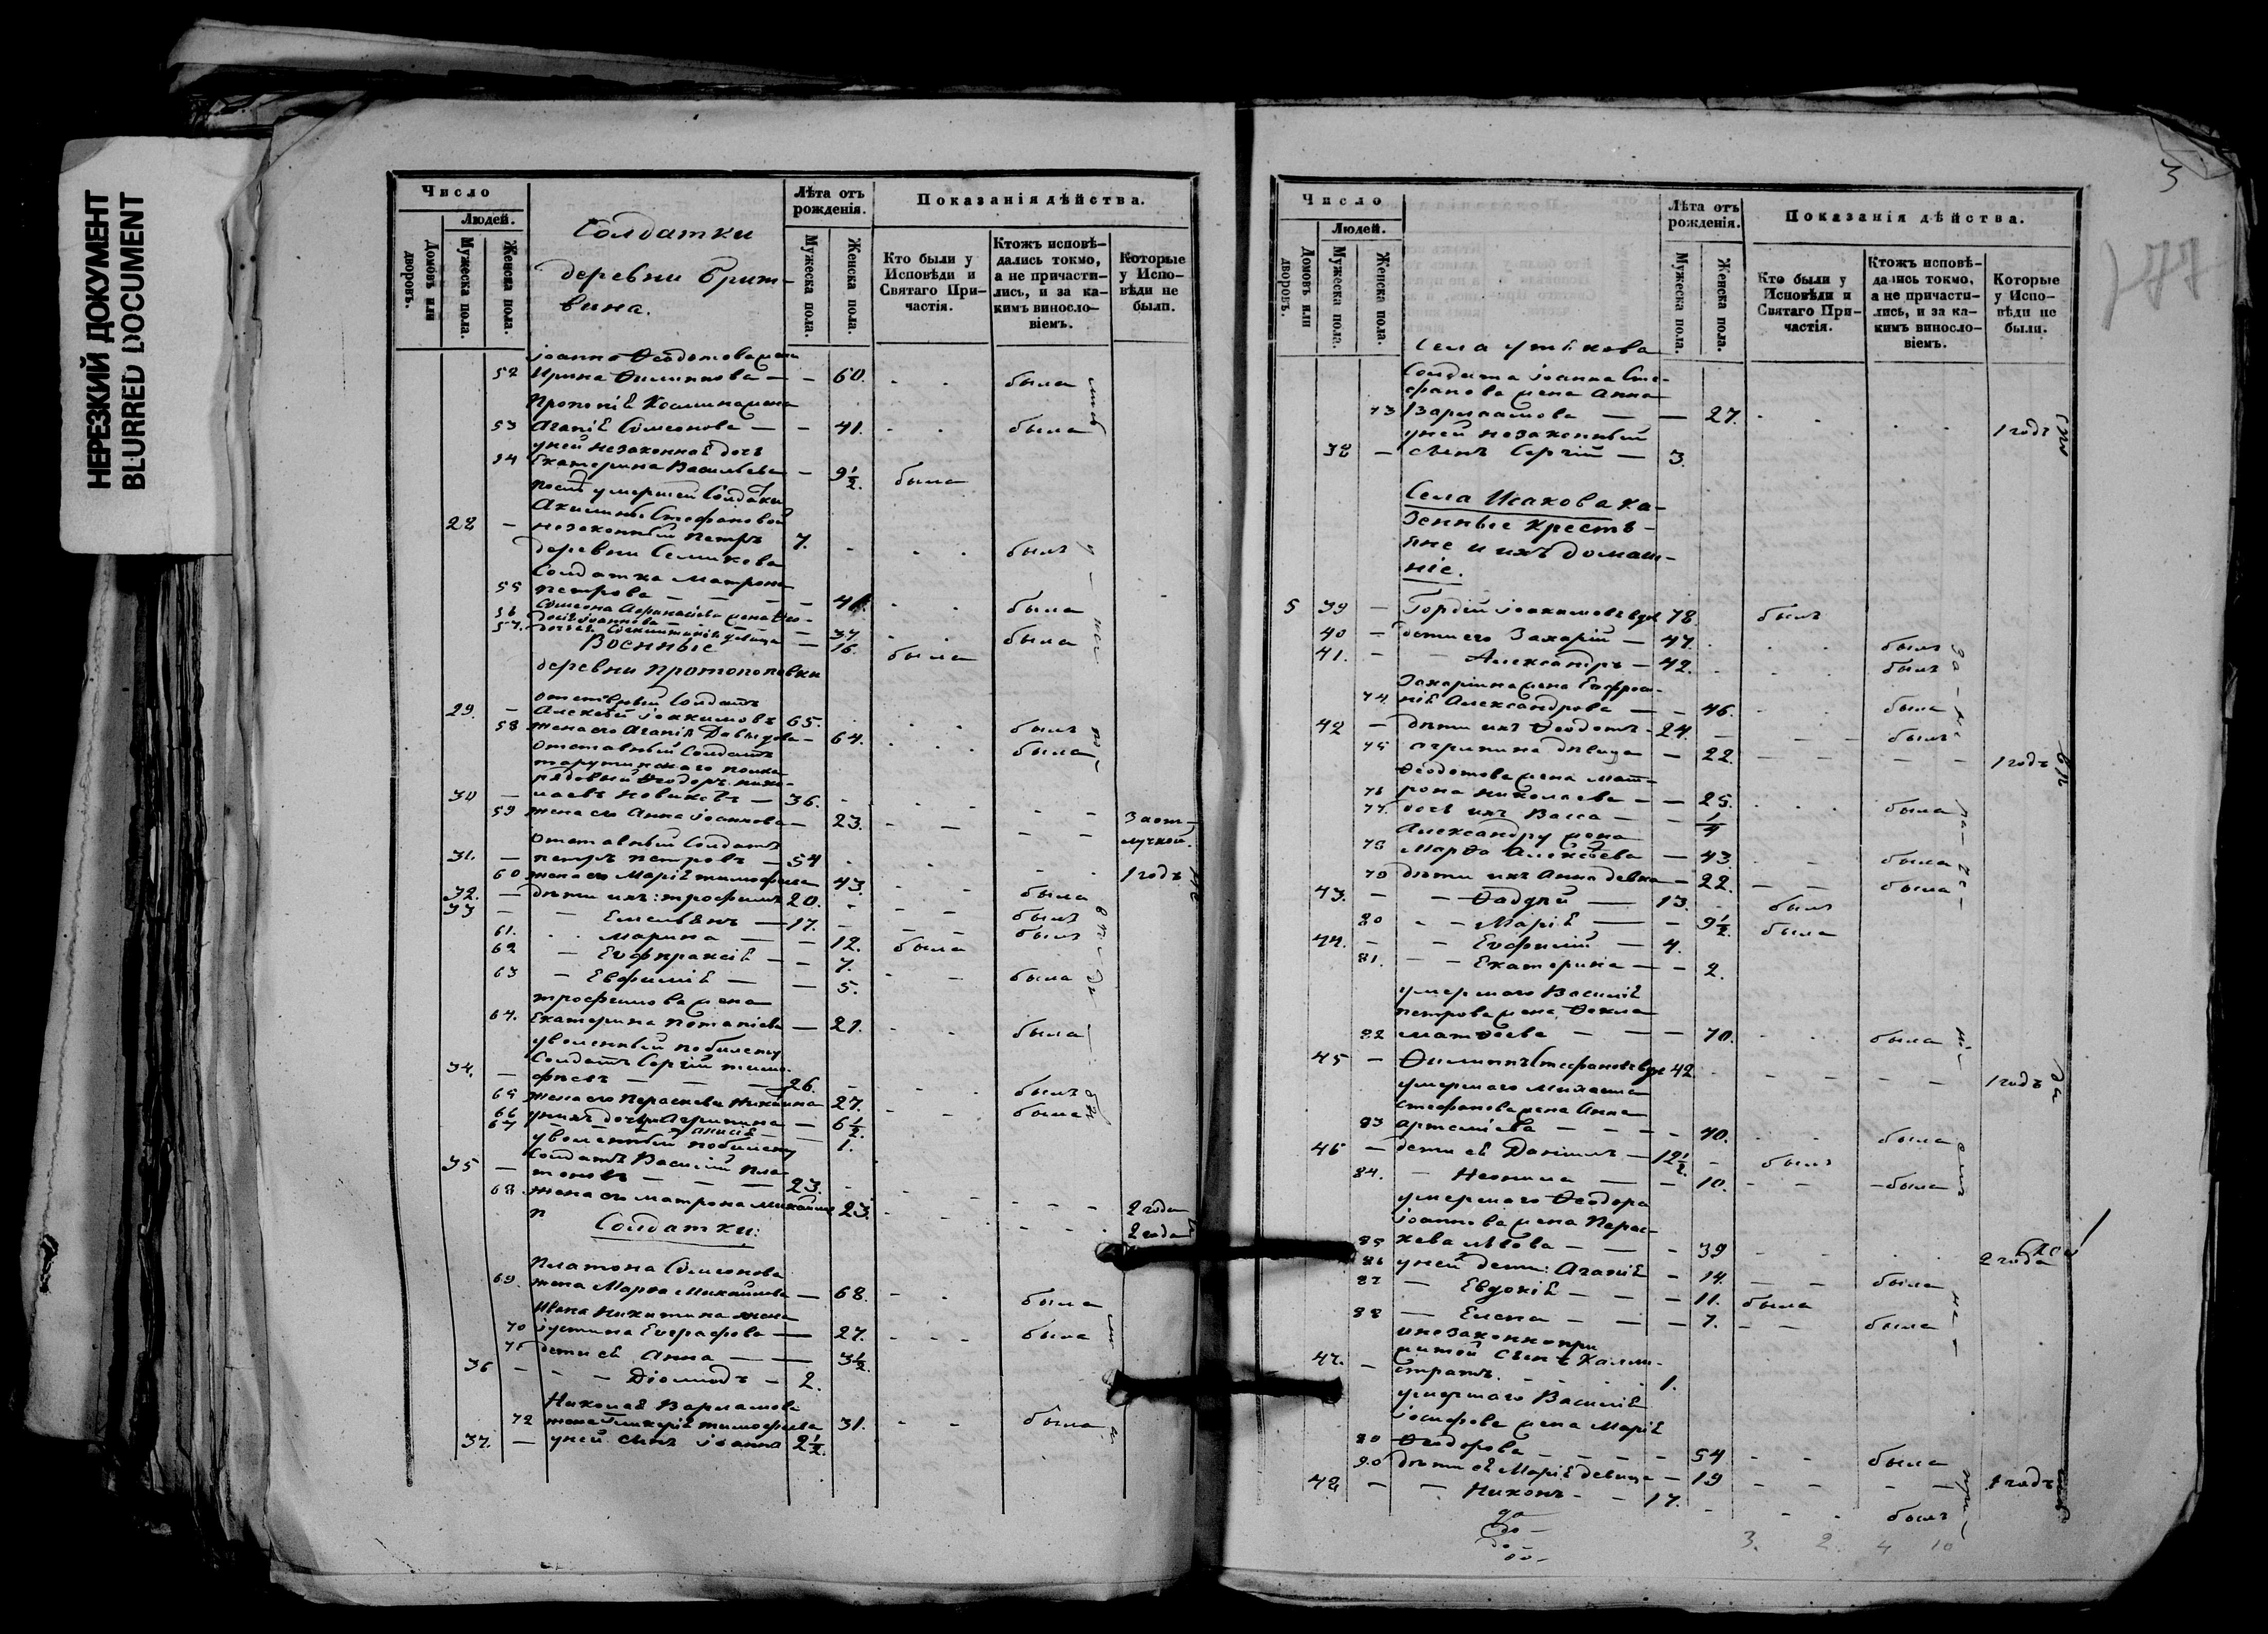 НЕРЕЗКИЙ ДОКУМЕНТ
BLURRED DOCUMENT
Число
Людей.
Домовъ или дворовъ.
Мужеска пола.
Женска пола.
Лѣта отъ рожденія.
Мужеска пола.
Женска пола.
Показанія дѣйства.
Кто были у Исповѣди и Святаго Причастія.
Ктожъ исповѣ-
дались токмо,
а не причасти-
лись, и за ка-
кимъ винословіемъ.
Которые
у Испо-
вѣди не
были.
Солдатки
деревни Брит-
вина.
Іоанна Ѳеодотова жена
52 Ирина Филиппова — — 60. была
Прокопія Косьмина жена
53 Агапія Симеонова — — 41. была
у ней незаконная дочь
54 Екатерина Васильева — 9½. была
после умершей солдатки
Акилины Стефановой
28 — незаконный Петръ 7. былъ
деревни Семикова
Солдатка Матрона
55 Петрова — — — 41. была
56 Симеона Афанасіева жена
Іоаннова — 37 была
57. дочь девица — 16. была
Военные
деревни Протопоповки
отставный Солдатъ
29. — Алексѣй Іоакимовъ 65. былъ
58 жена его Агапія Давыдова — 64. была
Отставный Солдатъ
тарутинскаго полка
рядовый Ѳеодоръ Нико-
30 — лаевъ Новиковъ — 36. За от-
59 жена его Анна Іоаннова — 23. лучкой.
Отставный Солдатъ
31. — Петръ Петровъ — 54 1 годъ
60 жена его Марія Тимофеева 43. была
32. — дѣти ихъ: Трофимъ 20. былъ
33 — Емельянъ — 17. былъ
61. Марина — — 12. была
62 — Евпраксія — — 7.
63 — Евфимія — — 5. была
Трофимова жена
64. Екатерина Потапіева — 21. была
уволенный по билету
Солдатъ Сергій Тимо-
34. — феевъ — — — 26. былъ
65 жена его Параскева Никитина 27. была
66 у нихъ дочери Агрипина — 6½.
67 Анисія — 1.
уволенный по билету
Солдатъ Василій Пла-
35 — тоновъ — — — 23. 2 года
68. жена его Матрона Михайлова 23. 2 года
Солдатки:
Платона Симеонова
69. жена Марѳа Михайлова — 68. была
Ивана Никитина жена
70 Іустина Евграфова — 27. была
71 дети ея Анна — — 3½.
36 — — — Діомидъ — 2.
Николая Варламова
72 жена Гликерія Тимофеева 31. была
37. — у ней сынъ Іоаннъ 2½.
3
Число
Людей.
Домовъ или дворовъ.
Мужеска пола.
Женска пола.
Лѣта отъ рожденія.
Мужеска пола.
Женска пола.
Показанія дѣйства.
Кто были у Исповѣди и Святаго Причастія.
Ктожъ исповѣ-
дались токмо,
а не причасти-
лись, и за ка-
кимъ винословіемъ.
Которые
у Испо-
вѣди не
были.
Села
Солдата Іоанна Сте-
фанова жена Анна
73 Варламова — — 27. 1 годъ
у ней незаконный
38 — сынъ Сергій — 3.
Села Исакова Ка-
зенные Кресть-
яне и ихъ домаш-
ніе.
5 39 — Гордій Іоакимовъ вдв 78. былъ
40 — дети его Захарій — 47. былъ
41. — — Александръ — 42. былъ
Захаріина жена Евфроси-
74. нія Александрова — — 46. была
42 — дѣти ихъ Ѳеодотъ — 24. былъ
75 Агрипина дѣвица — 22. 1 годъ
Ѳеодотова жена Мат-
76 рона Николаева — — 25. была
77. дочь ихъ Васса — — ¼
Александру жена
78 Марѳа Алексѣева — 43. была
79 дѣти ихъ Анна девка — 22. была
43. — — Ѳаддей — 13. былъ
80 — — Марія — — 9½. была
44. — — Евфимій — 4.
81. — — Екатерина — — 2.
умершаго Василія
Петрова жена Ѳекла
82 Матѳеева — — — 70. была
45 — Филиппъ Стефановъ вдв 42. 1 годъ
умершаго Михаила
Стефанова жена Анна
83 Артеміева — — — 40. была
46 — дети ея Даніилъ — 12½. былъ
84. — Неонила — — 10. была
умершаго Ѳеодора
Іоаннова жена Парас-
85 кева Львова — — — 39 2 года
86 у ней дети: Агапія — 14. была
87 — Евдокія — — — 11. была
88 — Елена — — — 7. была
и незаконно при-
житой сынъ Калли-
47. — стратъ. 1.
умершаго Василія
Іосифова жена Марія
89 Ѳеодорова — — — 54 была
90 дѣти ея Марія девица — 19 1 годъ
48 — — Никонъ — — 17. былъ
3. 2. 4 10